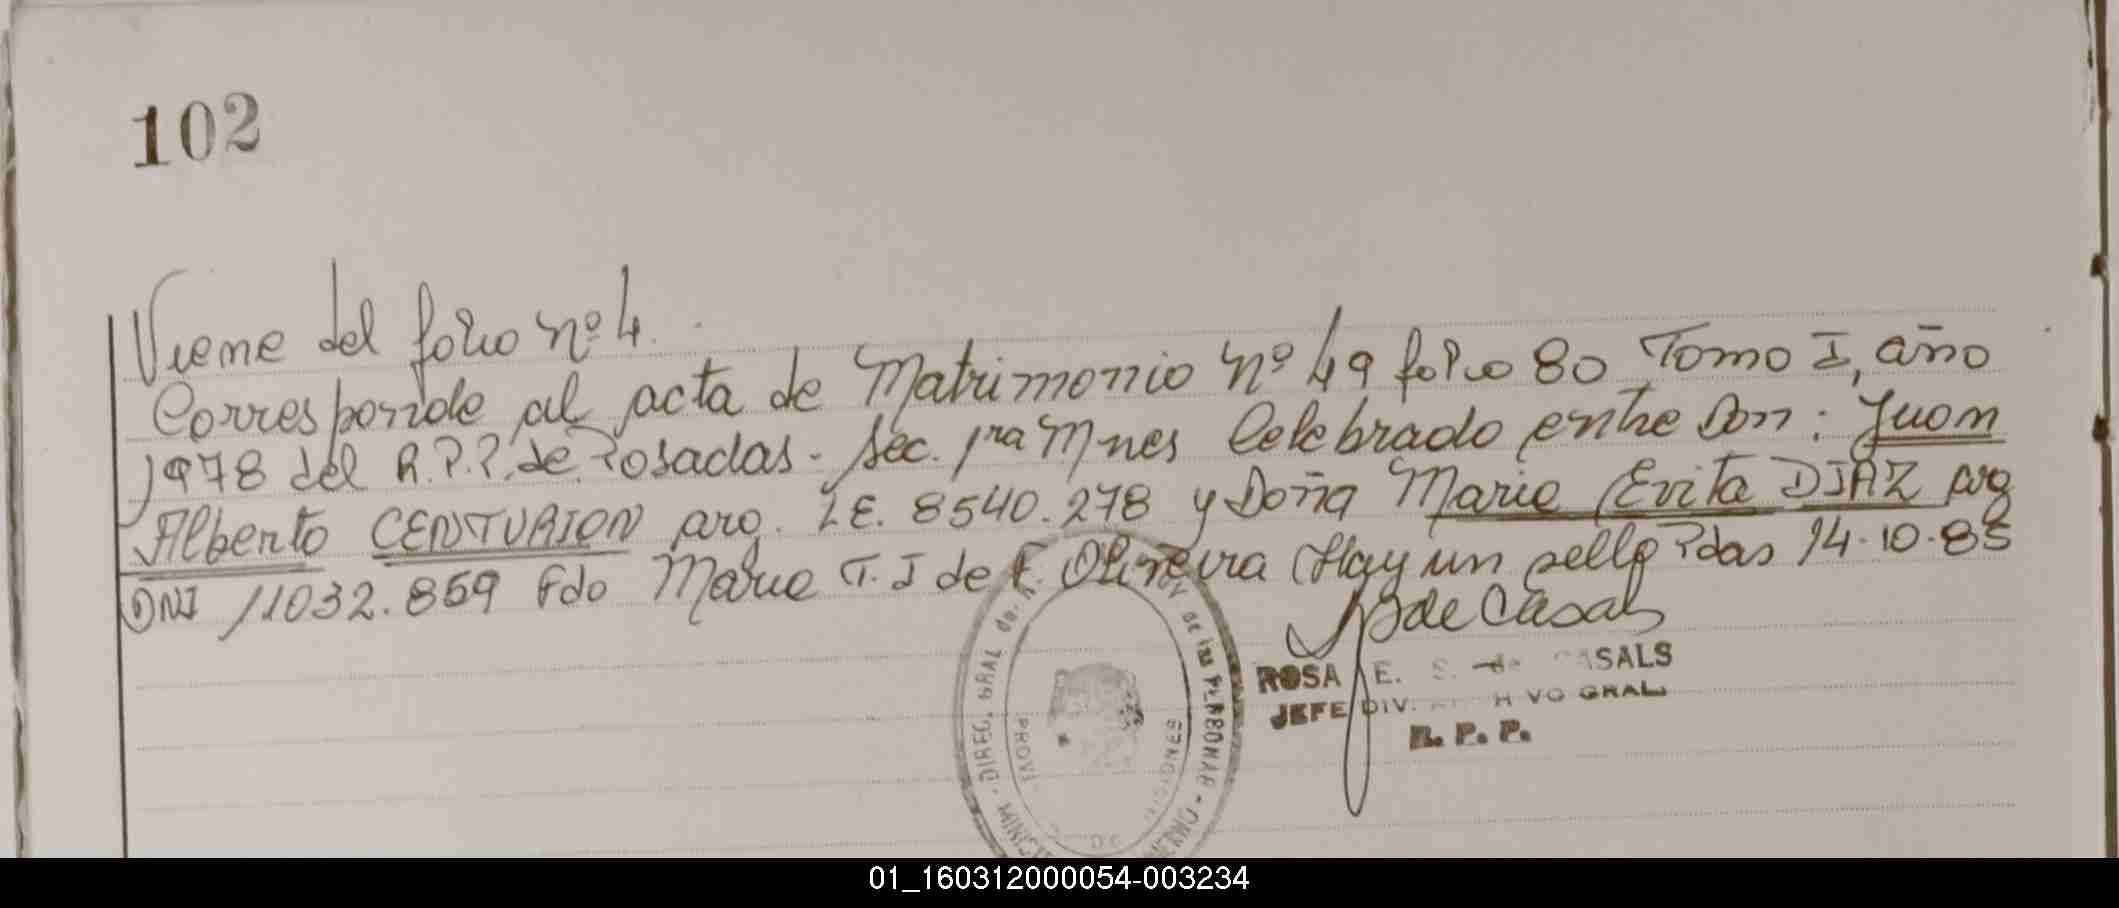 102
Viene del folio nº 4.
Corresponde al acta de Matrimonio nº 49 folio 80 Tomo I, año
1978 del R.P.P. de Posadas. Sec. 1ra Mnes Celebrado entre Don: Juan
Alberto CENTURION arg. LE. 8540.278 y Doña Maria Evita DIAZ arg
DNI 11032.859 Fdo Maria T. J de F. Oliveira (Hay un sello Pdas 14.10.85
de Casals
ROSA E. S. de CASALS
JEFE DIV. GRAL
R. P. P.
DIREC. GRAL de
de las PERSONAS
01_160312000054-003234